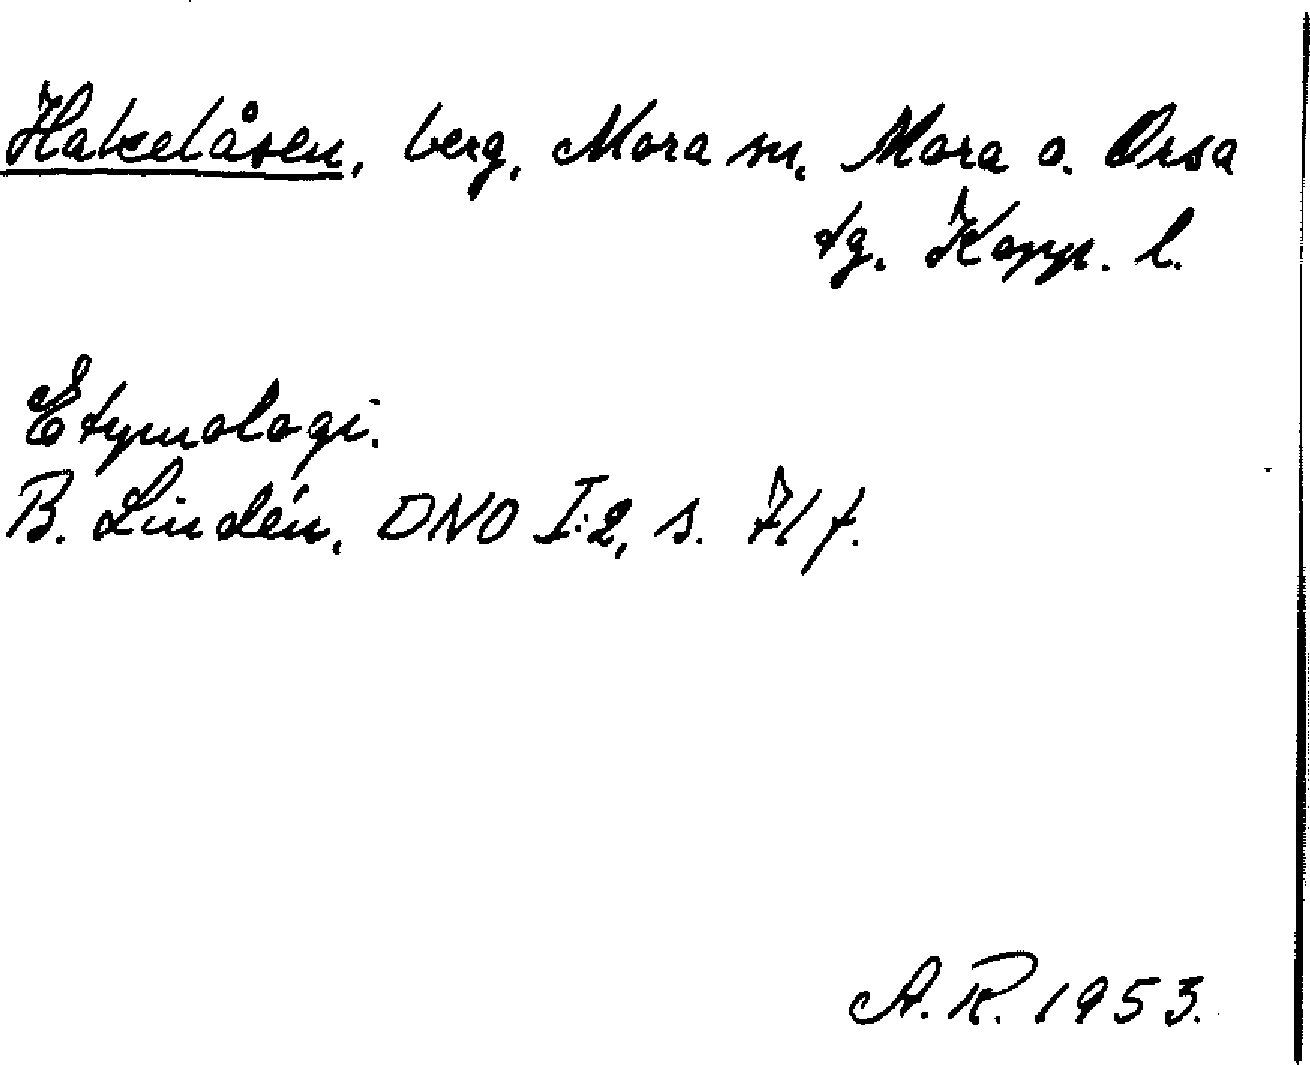 Hakelåsen, berg, Mora sn, Mora o. Orsa
tg. Kopp. l.
Etymologi.
B. Lindén, DNO I:2, s. 71 f.
A. R. 1953.